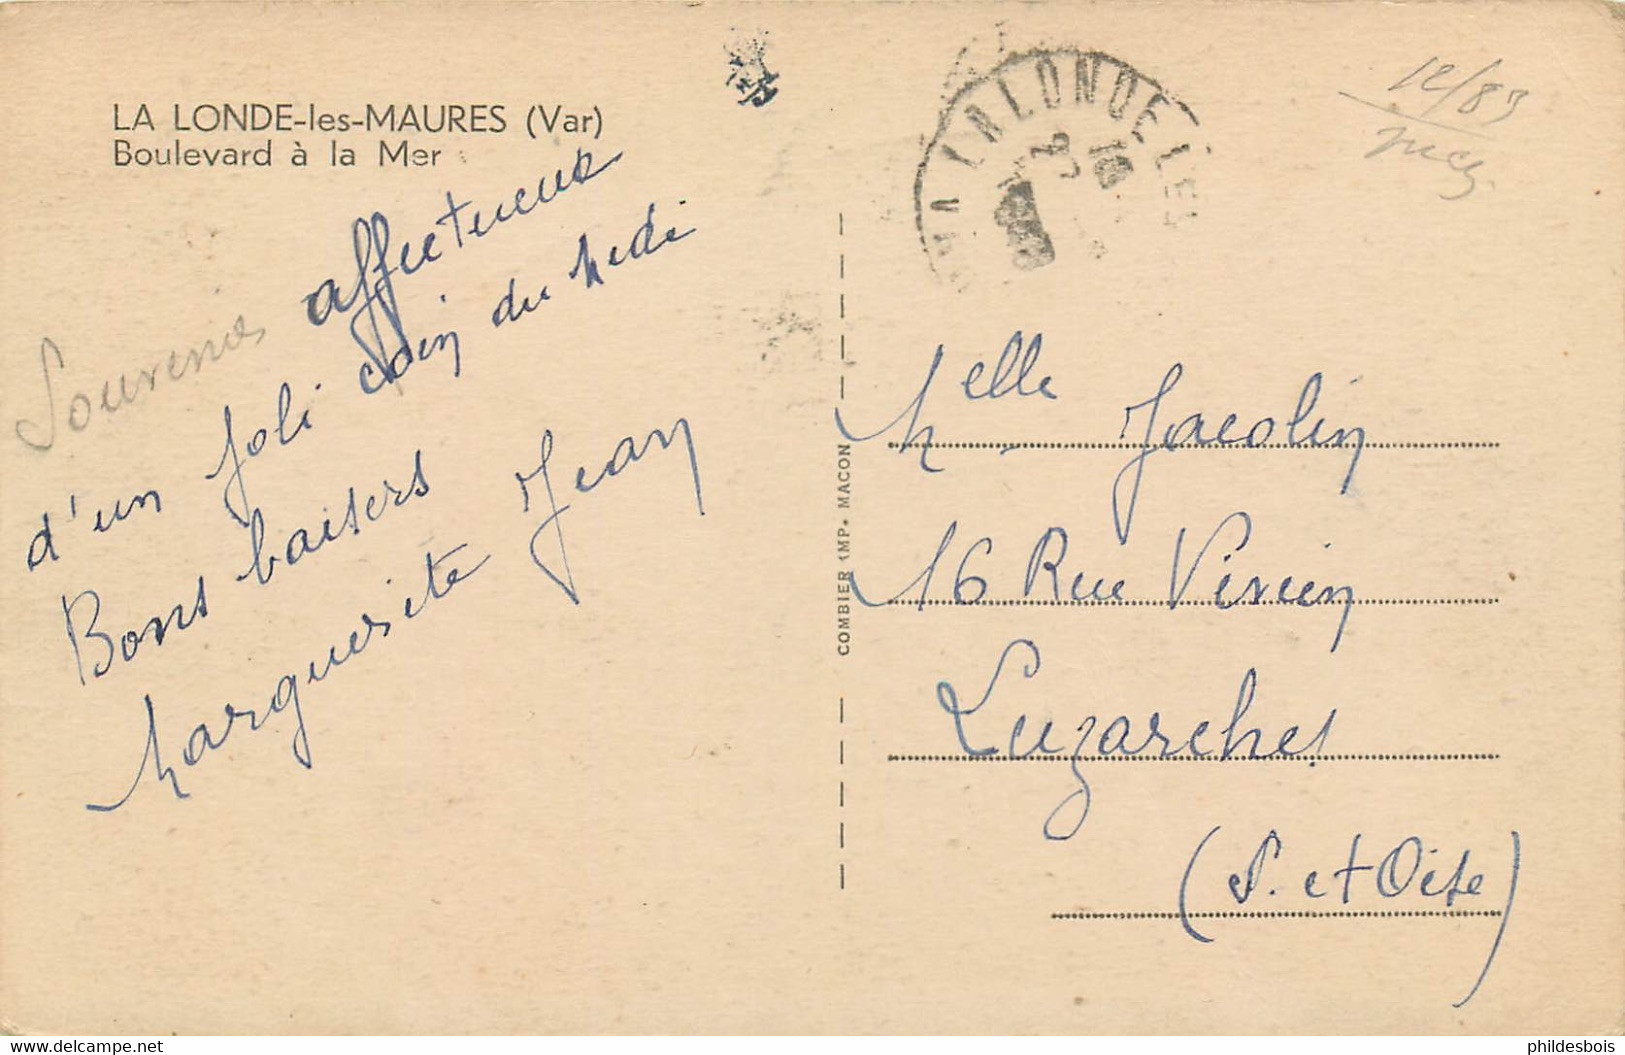 LA LONDE-les-MAURES (Var)
Boulevard à la Mer
Souvenirs affectueux
d'un joli coin du Midi
Bons baisers
Marguerite Jean
COMBIER IMP. MACON
LA LONDE LES
Melle Jacolin
16 Rue Vivien
Luzarches
(S. et Oise)
delcampe.com
phildesbois